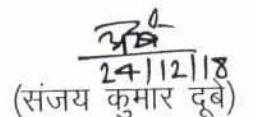 24/12/18
(संजय कुमार दूबे)